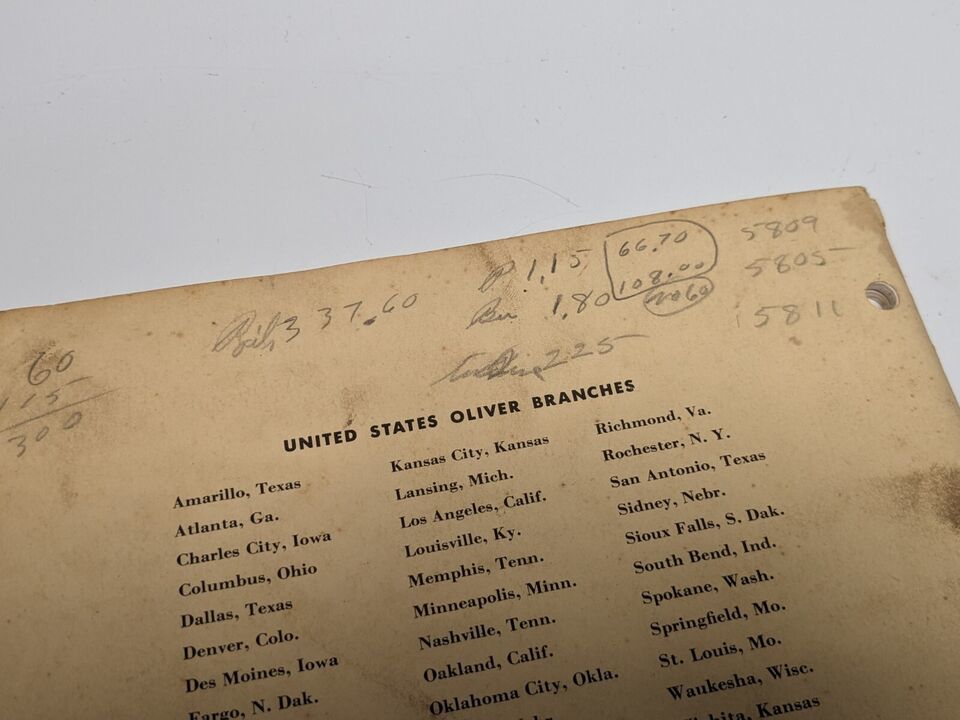 66.70
5809
1.15
108.00
5805
37.60
1.80
5811
60
225
115
300
UNITED STATES OLIVER BRANCHES
Amarillo, Texas
Atlanta, Ga.
Charles City, Iowa
Columbus, Ohio
Dallas, Texas
Denver, Colo.
Des Moines, Iowa
Fargo, N. Dak.
Kansas City, Kansas
Lansing, Mich.
Los Angeles, Calif.
Louisville, Ky.
Memphis, Tenn.
Minneapolis, Minn.
Nashville, Tenn.
Oakland, Calif.
Oklahoma City, Okla.
Richmond, Va.
Rochester, N. Y.
San Antonio, Texas
Sidney, Nebr.
Sioux Falls, S. Dak.
South Bend, Ind.
Spokane, Wash.
Springfield, Mo.
St. Louis, Mo.
Waukesha, Wisc.
Kansas